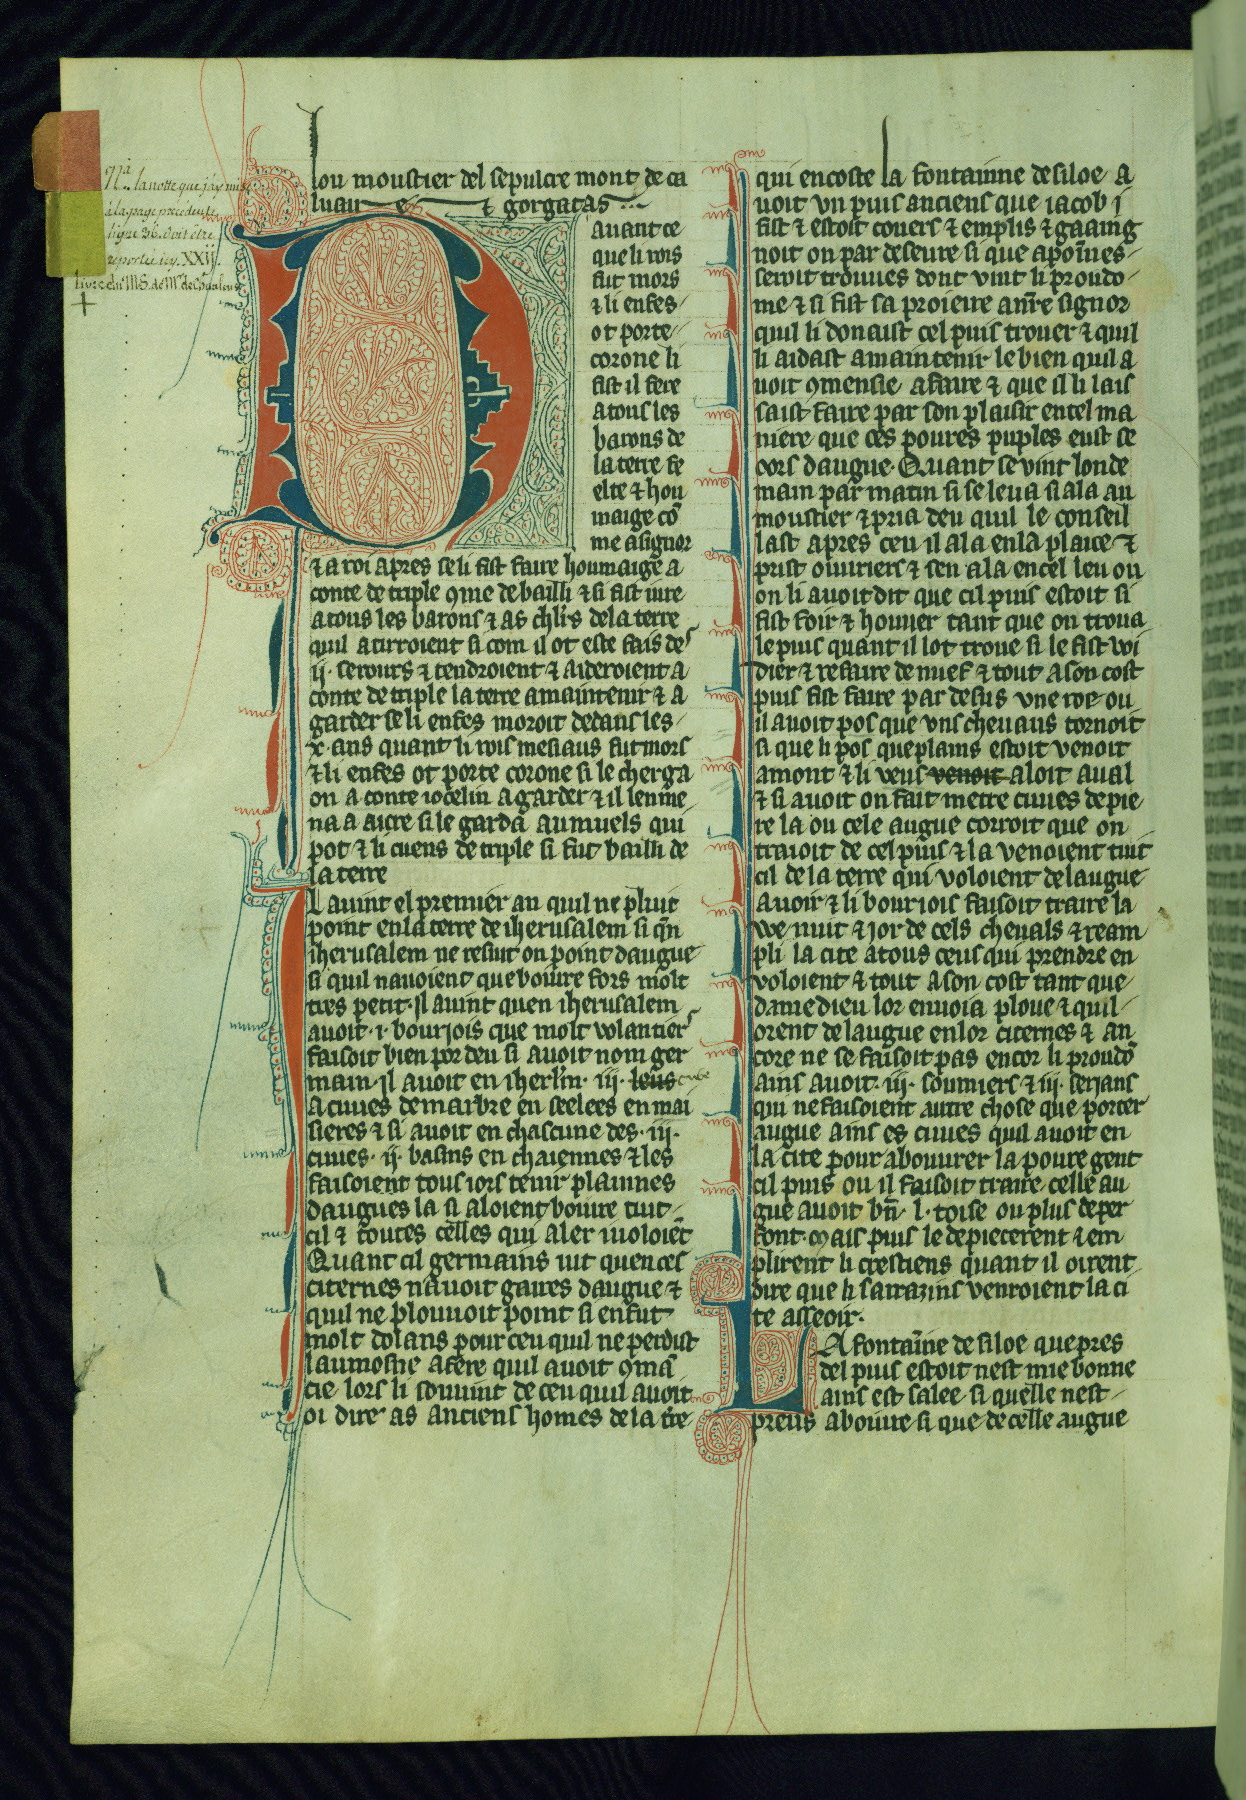 Na. lanotte que j'ay mise
à la page precedente
ligne 36. doit être
reportée icy. XXII.
livre du MS. de Mr. de
+
lou moustier del sepulcre mont de ca
luaire & gorgatas
auant ce
que li rois
fut mors
& li enfes
ot porte
corone li
fist il fere
a tous les
barons de
la terre fe
elte & hou
maige cō
me a signor
& a roi apres se li fist faire houmaige a
conte de triple 9me de bailli & si fist iure
a tous les barons & as chl'rs de la terre
quil atirroient si com il ot este fais des
.ij. serours & tendroient & aideroient a
conte de triple la terre a maintenir & a
garder se li enfes moroit dedans les
.x. ans quant li rois mesiaus fut mors
& li enfes ot porte corone si le cherga
on a conte iocelin a garder & il lenme
na a aicre si le garda au muels qui
pot & li cuens de triple si fut bailli de
la terre
l auint el premier an quil ne pluit
point en la terre de iherusalem si q̄n
iherusalem ne resuit on point daugue
si quil nauoient que boiuire fors molt
tres petit. Il auint quen iherusalem
auoit .i. bourjois que molt volantiers
faisoit bien por deu si auoit nom ger
main. il auoit en iherl'm .iij. leus cuue
a cuues de marbre en seelees en mai
sieres & si auoit en chascune des .iij.
cuues .ij. basins en chaiennes & les
faisoient tous iors tenir plainnes
daugues la si aloient boiure tuit
cil & toutes celles qui aler i uoloiēt
Quant cil germains uit quen ces
citernes nauoit gaires daugue &
quil ne plouuoit point si en fut
molt dolans pour ceu quil ne perdist
laumosne a fere quil auoit 9mā
cie. lors li souuint de ceu quil auoit
oi dire as anciens homes de la t're
qui encoste la fontainne de siloe a
uoit vn puis anciens que iacob i
fist & estoit couers & emplis & gaaing
noit on par deseure si que a poīnes
seroit trouues dont vint li proudo
me & si fist sa proieire a nr̄e signor
quil li donaist cel puis trouer & quil
li aidast a maintenir le bien quil a
uoit 9mensie a faire & que il li lais
saist faire par son plaisir en tel ma
niere que ces poures puples eust se
cors daugue. Quant se vint londe
main par matin si se leua si ala au
moustier & pria deu quil le conseil
last apres ceu il ala en la plaice &
prist ouuriers & sen ala en cel leu ou
on li auoit dit que cil puis estoit si
fist foir & houuer tant que on troua
le puis quant il lot troue si le fist wi
dier & refaire de nuef & tout a son cost
puis fist faire par desus vne roe ou
il auoit pos que vns cheuaus tornoit
si que li pos que plains estoit venoit
amont & li veus venoit aloit aual
& si auoit on fait metre cuues de pie
re la ou cele augue corroit que on
traioit de cel puis & la venoient tuit
cil de la terre qui voloient de laugue
auoir & li bourjois faisoit traire la
we nuit & jor de cels cheuals & ream
pli la cite a tous ceus qui prendre en
voloient & tout a son cost tant que
damedieu lor enuoia ploue & quil
orent de laugue en lor citernes & an
core ne se faisoit pas encor li proudō
ains auoit .iij. soumiers & .iij. serjans
qui ne faisoient autre chose que porter
augue ains es cuues quil auoit en
la cite pour abouurer la poure gent
cil puis ou il faisoit traire celle au
gue auoit bn̄ .l. toise ou plus de per
font. Mais puis le depiecerent & em
plirent li crestiens quant il oirent
dire que li sarrazins venroient la ci
te asseoir.
LA fontaīne de siloe que pres
del puis estoit nest mie bonne
ains est salee si quelle nest
preus a boiure si que de celle augue